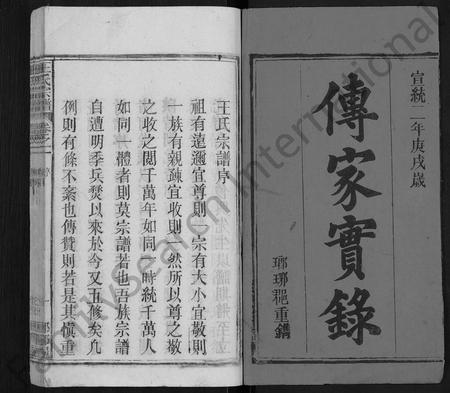 宣統二年庚戌歲
傳家實錄
瑯琊郡重鐫
王氏宗譜序
祖有遠邇宜尊則一宗有大小宜敬則
一族有親疎宜收則一然所以尊之敬
之收之閱千萬年如同一時統千萬人
如同一體者則莫宗譜若也吾族宗譜
自遭明季兵燹以來於今又五修矣凡
例則有條不紊也傳贊則若是其慎重
王氏宗譜
FamilySearch International